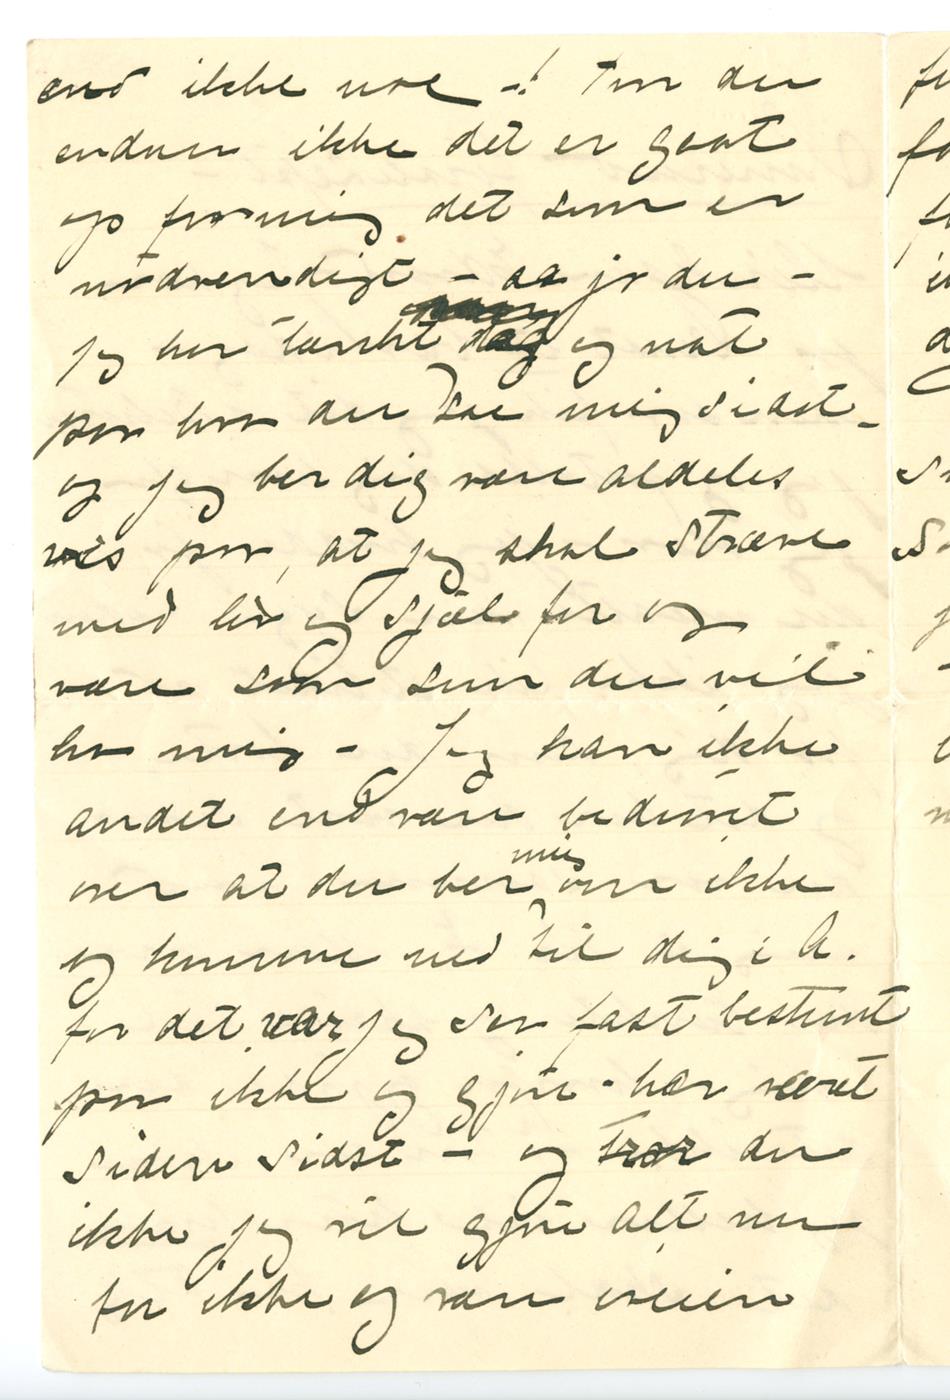 end ikke noe –! Tror du
endnu ikke det er gaat
op for mig det som er
nødvendigt – aa jo du –
jeg har tænkt dag og nat
paa hva du sae mig sidst –
og jeg ber dig være aldeles
vis paa, at jeg skal stræve
med liv og sjæl for og
være saan som du vil
ha mig – Jeg kan ikke
andet end være bedrøvet
over at du ber mig om ikke
og komme ned til dig i A.
for det var jeg saa fast bestemt
paa ikke og gjøre - har været
siden sidst – og tror du
ikke jeg vil gjøre alt nu
for ikke og være iveien